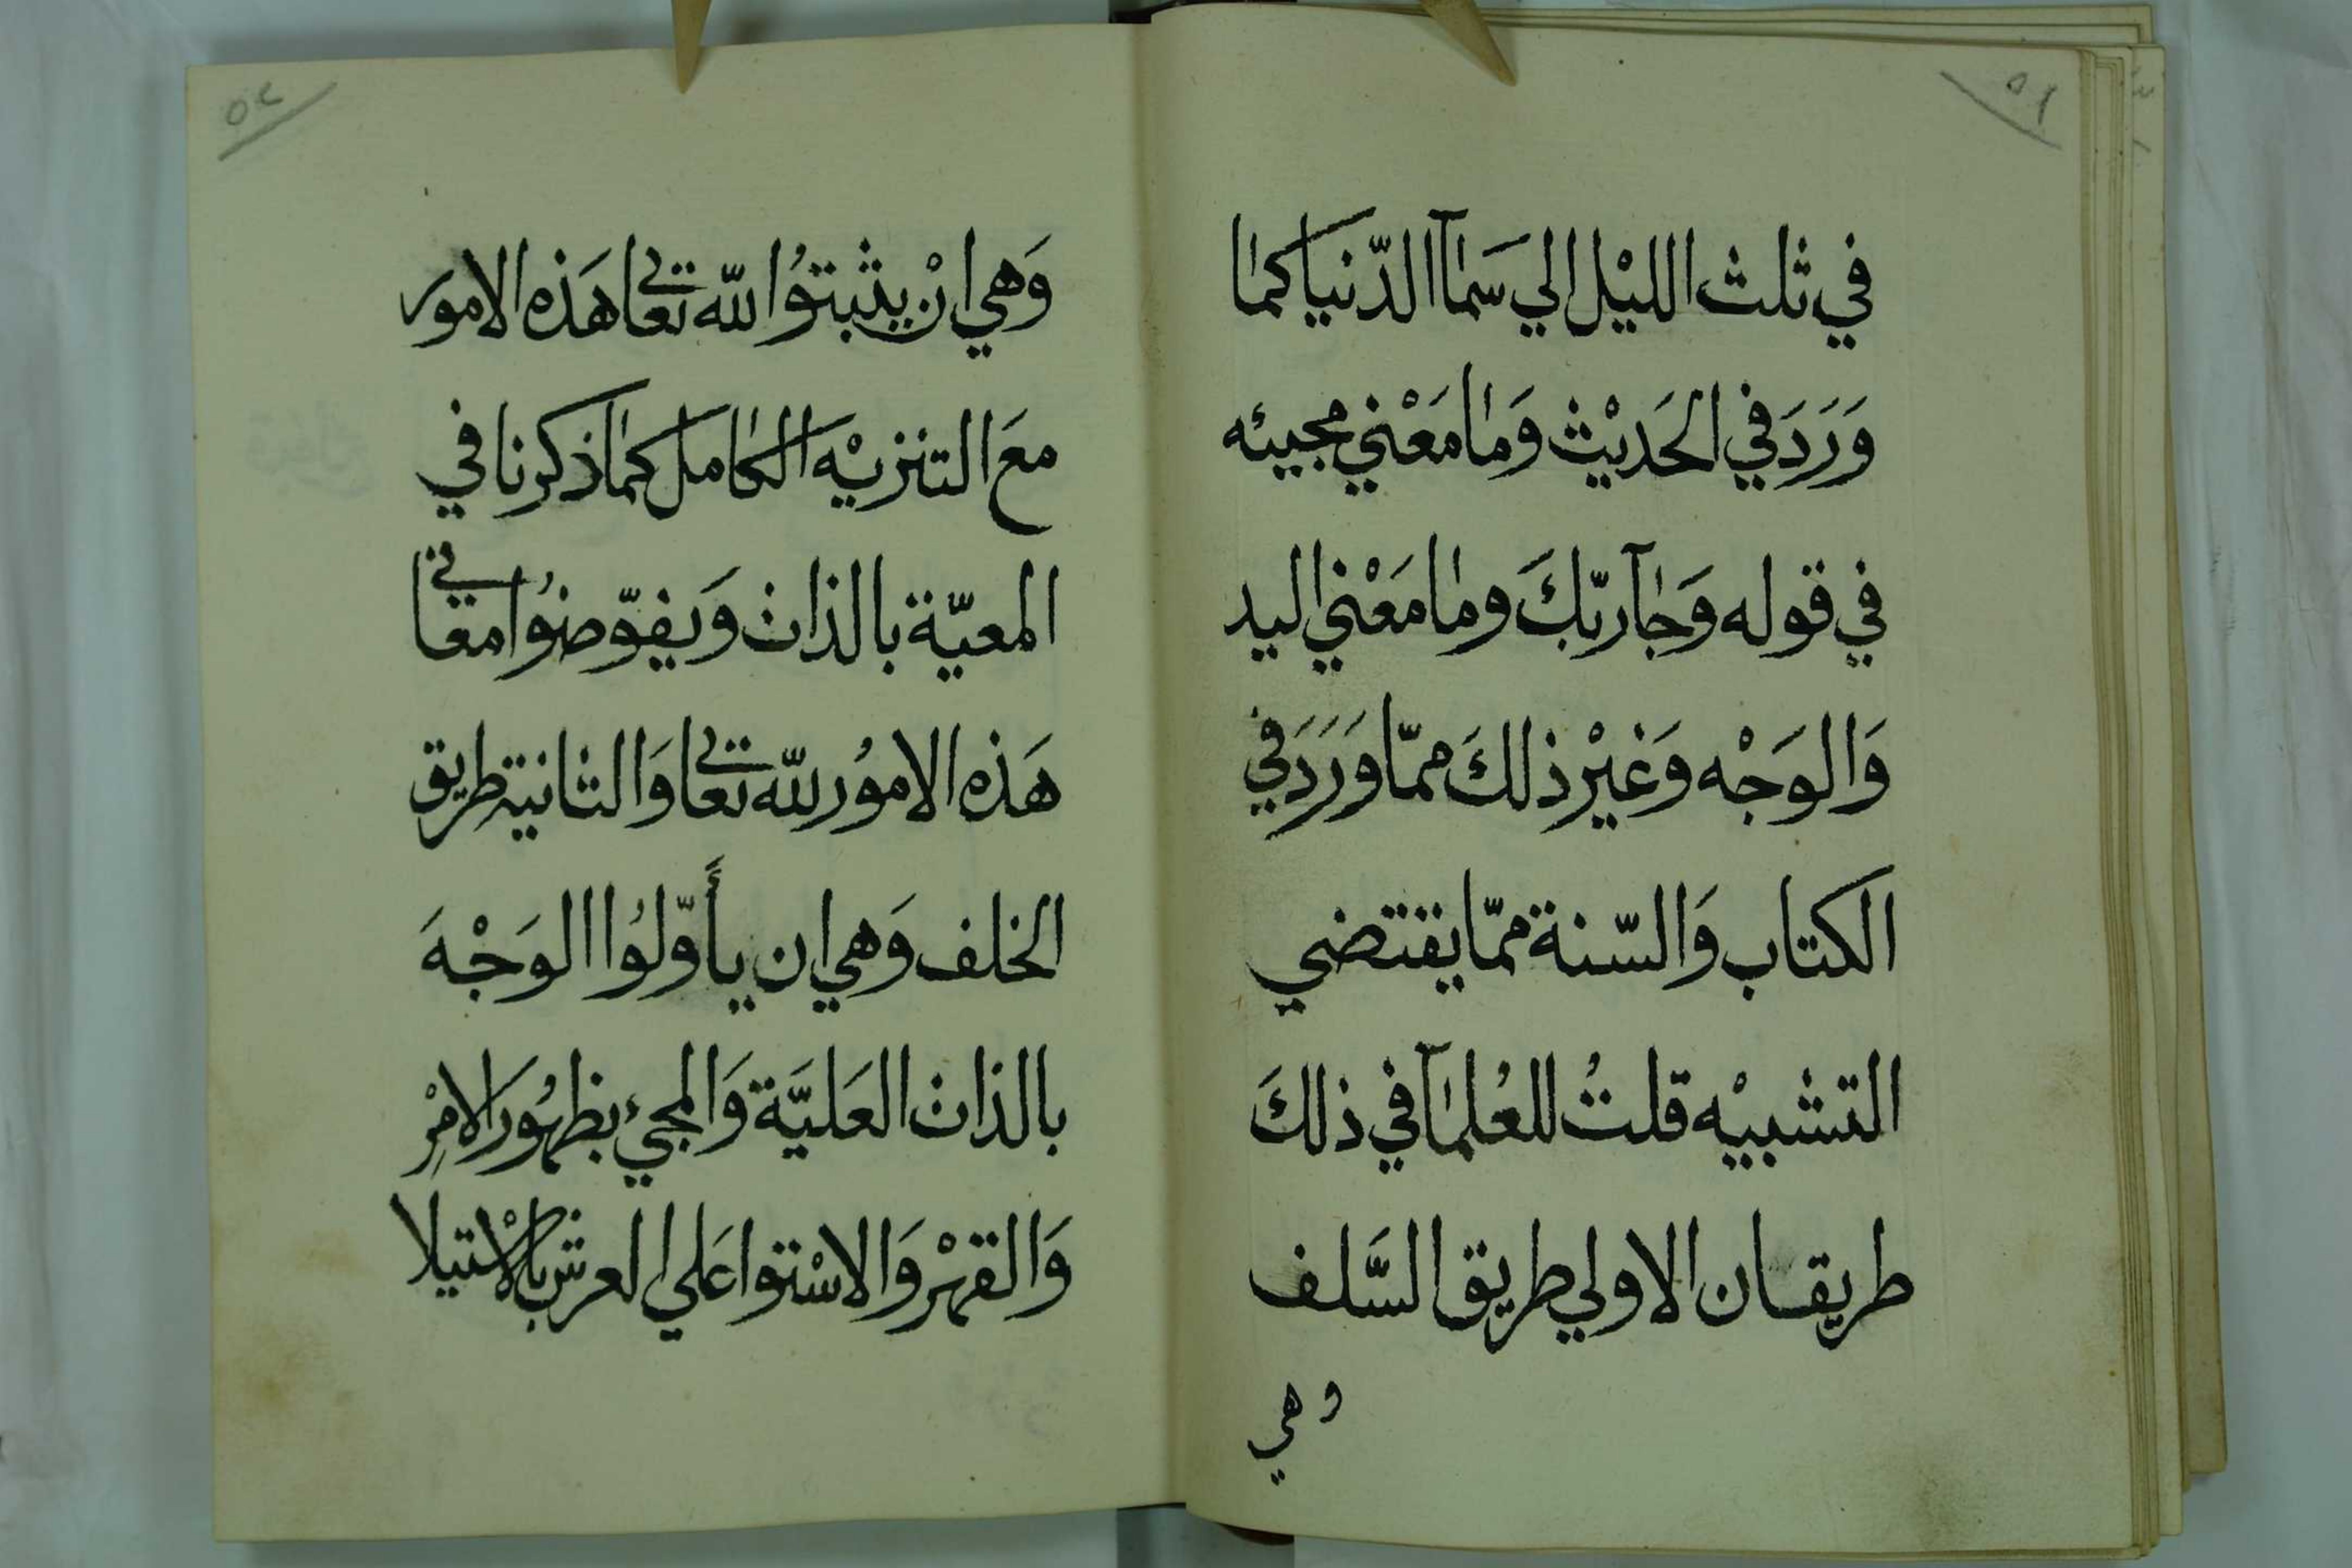 ٥١
في ثلث الليْل الي سَمآا الدّنيا كما
وَرَدَ في الحَديْث وَما مَعْني مجيئه
في قوله وَجآ ربّكَ وما مَعْني اليد
وَالوَجْه وَغيْر ذلكَ ممّا وَرَدَ في
الكتاب وَالسّنة ممّا يقتضي
التشبيْه قلتُ للعُلمآ في ذلكَ
طريقان الاولي طريق السَّلف
وهي
٥٢
وَهي انْ يثبتوُا لله تعالى هَذه الامور
معَ التنزيْه الكامل كما ذكرنا في
المعيّة بالذات وَيفوّضوُا معاني
هَذه الاموُر لله تعالى وَالثانية طريق
الخلف وَهي ان يأَوّلوُا الوَجْهَ
بالذات العَليَّة وَالمجيء بظهُور الامْرِ
وَالقهْر وَالاسْتوا عَلي العرش بالاسْتيلا